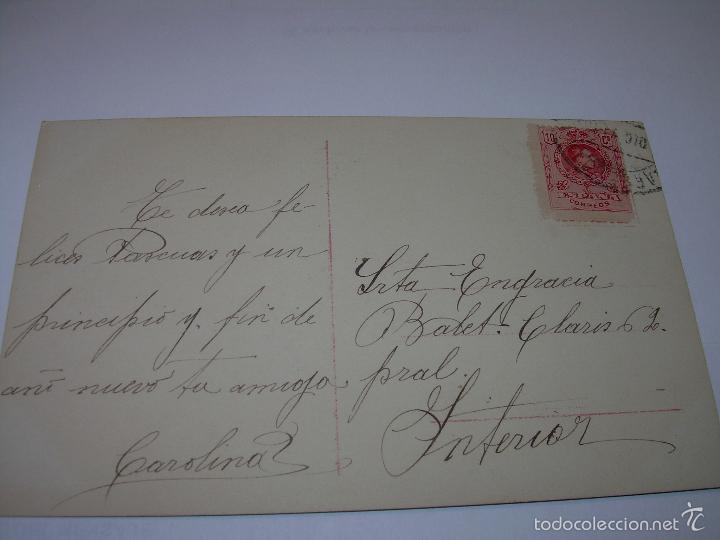 Te deseo fe-
lices Pascuas y un
principio y fin de
añi nuevo tu amiga
Carolina
10 Cs
CORREOS
DIC
Srta Engracia
Balet. Claris 62.
pral.
Interior
todocoleccion.net